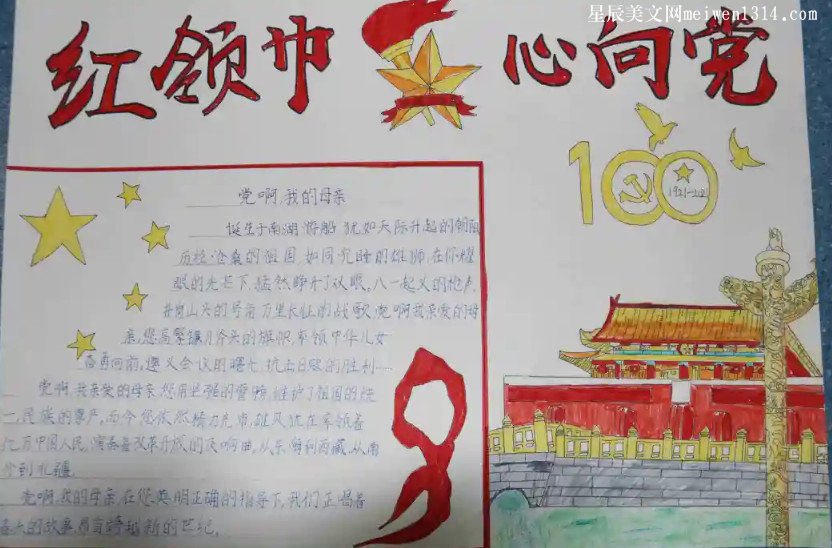 星辰美文网meiwen1314.com
红领巾 心向党
100
1921-2021
党啊,我的母亲
诞生于南湖游船,犹如天际升起的朝阳
历经沧桑的祖国,如同沉睡的雄狮,在你耀
眼的光芒下,猛然睁开了双眼,八一起义的枪声,
井岗山头的号角,万里长征的战歌,党啊,我亲爱的母
亲,您高擎镰刀斧头的旗帜,率领中华儿女
奋勇向前,遵义会议的曙光,抗击日寇的胜利……
党啊,我亲爱的母亲,您用坚强的臂膀,维护了祖国的统
一,民族的尊严,而今,您依然精力充沛,雄风犹在,率领着
亿万中国人民,演奏着改革开放的交响曲,从东 到西藏,从南
到北疆
党啊,我的母亲,在您英明正确的指导下,我们正唱着
春天的故事,昂首跨越新的世纪。